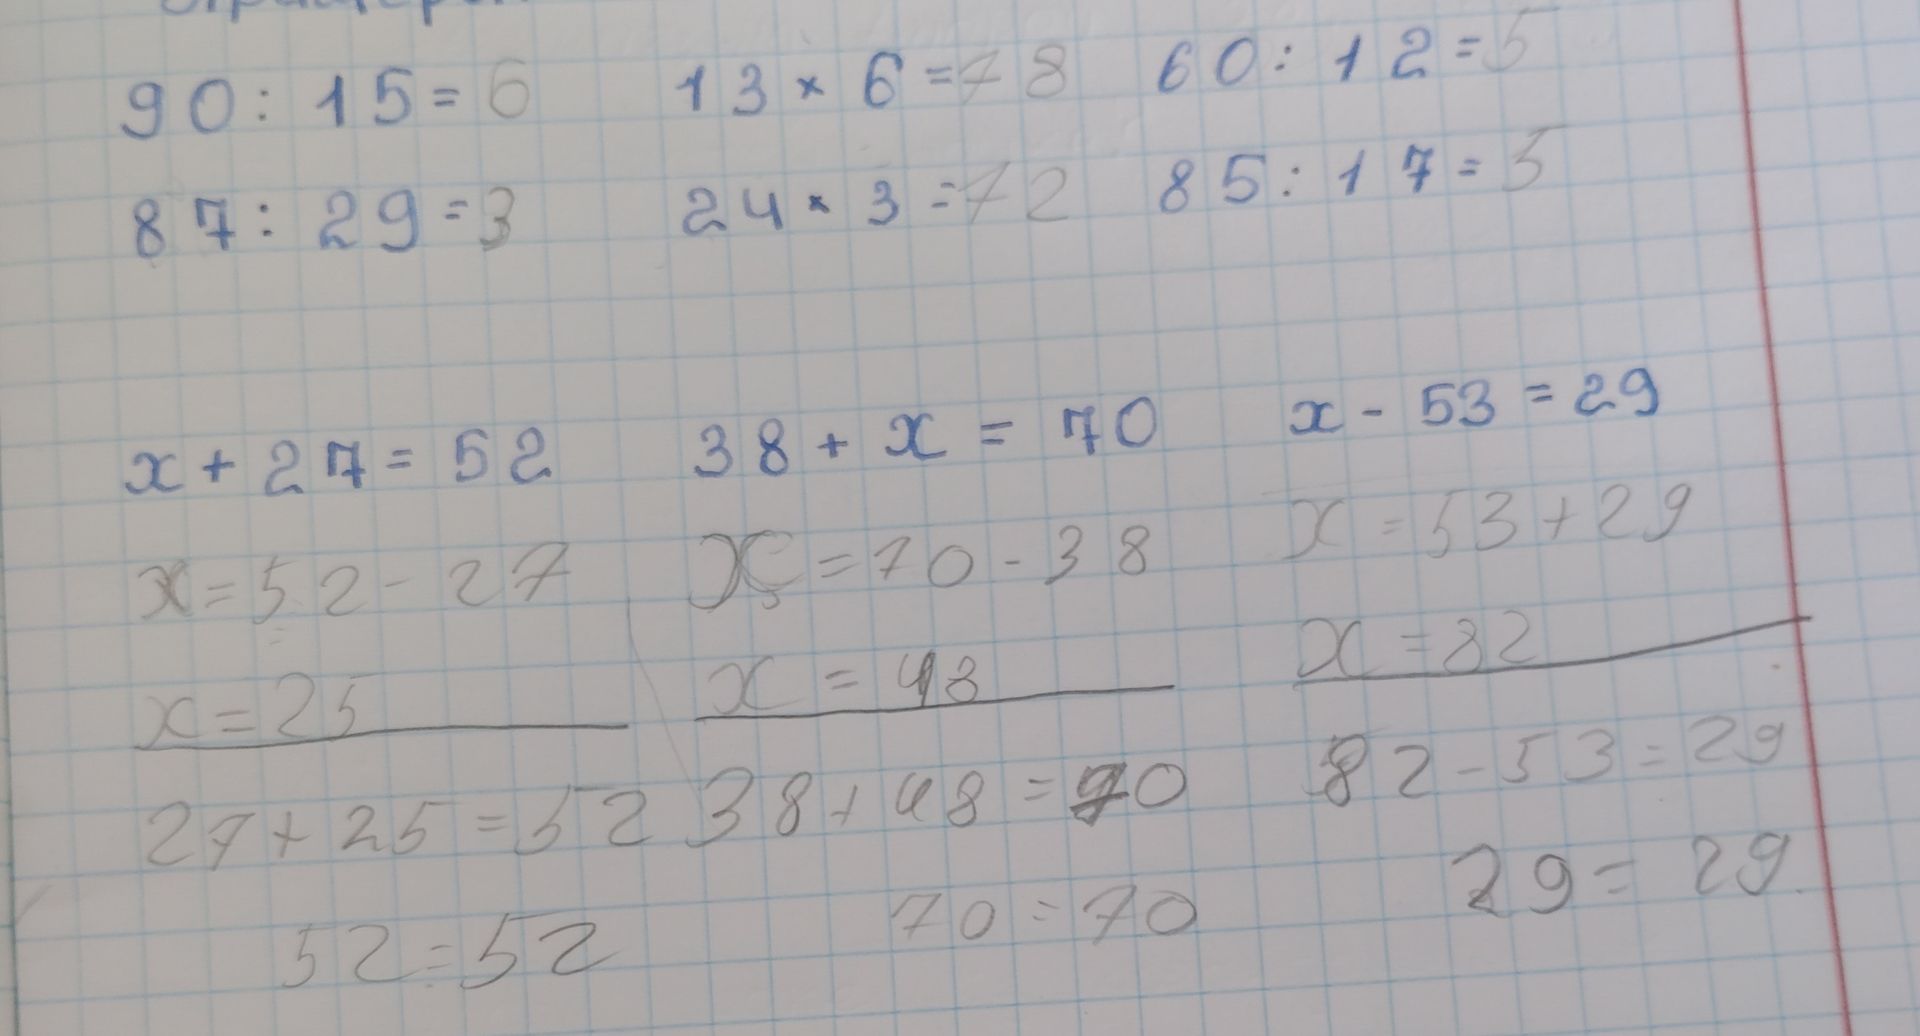 90 : 15 = 6 13 × 6 = 78 60 : 12 = 5
87 : 29 = 3 24 × 3 = 72 85 : 17 = 5
x + 27 = 52 38 + x = 70 x - 53 = 29
x = 52 - 27 x = 70 - 38 x = 53 + 29
x = 25 x = 48 x = 82
27 + 25 = 52 38 + 48 = 70 82 - 53 = 29
52 = 52 70 = 70 29 = 29